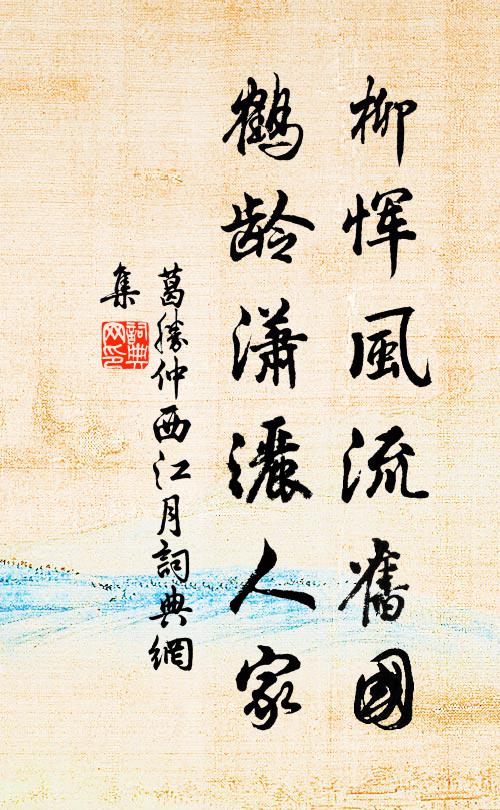 柳恽風流舊國
鶴龄瀟灑人家
葛勝仲西江月詞典網
集
詞典
网印